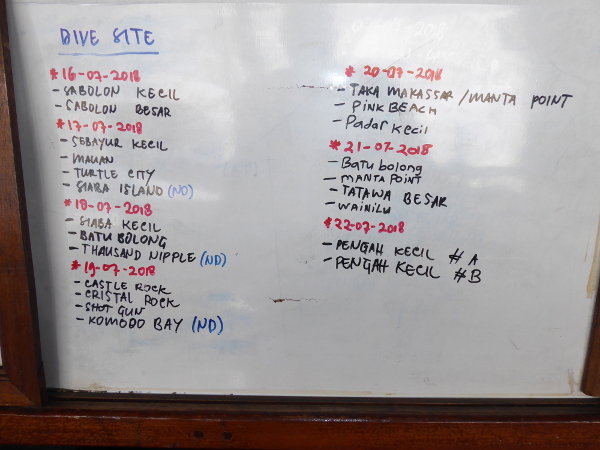 DIVE SITE
* 16-07-2018
- SABOLON KECIL
- SABOLON BESAR
* 17-07-2018
- SEBAYUR KECIL
- MAUAN
- TURTLE CITY
- SIABA ISLAND (ND)
* 18-07-2018
- SIABA KECIL
- BATU BOLONG
- THAUSAND NIPPLE (ND)
* 19-07-2018
- CASTLE ROCK
- CRISTAL ROCK
- SHOT GUN
- KOMODO BAY (ND)
* 20-07-2018
- TAKA MAKASSAR / MANTA POINT
- PINK BEACH
- Padar Kecil
* 21-07-2018
- Batu bolong
- MANTA POINT
- TATAWA BESAR
- WAINILU
* 22-07-2018
- PENGAH KECIL # A
- PENGAH KECIL # B